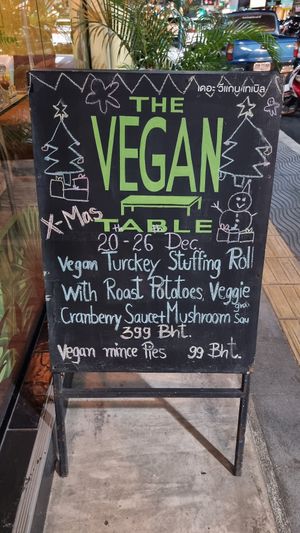 เดอะ วีแกน เทเบิล
THE
VEGAN
TABLE
X-Mas
20th - 26th Dec.
Vegan Turckey Stuffing Roll
With Roast Potatoes, Veggie
Cranberry Sauce + Mushroom Sau
399 Bht.
Vegan mince Pies 99 Bht.